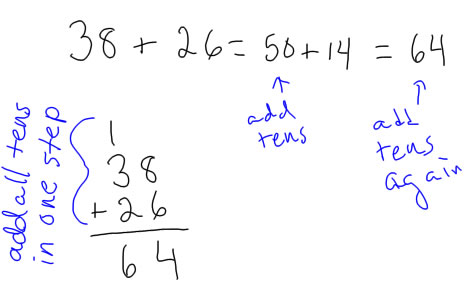 38 + 26 = 50 + 14 = 64
add
tens
add
tens
again
add all tens
in one step
1
38
+ 26
64